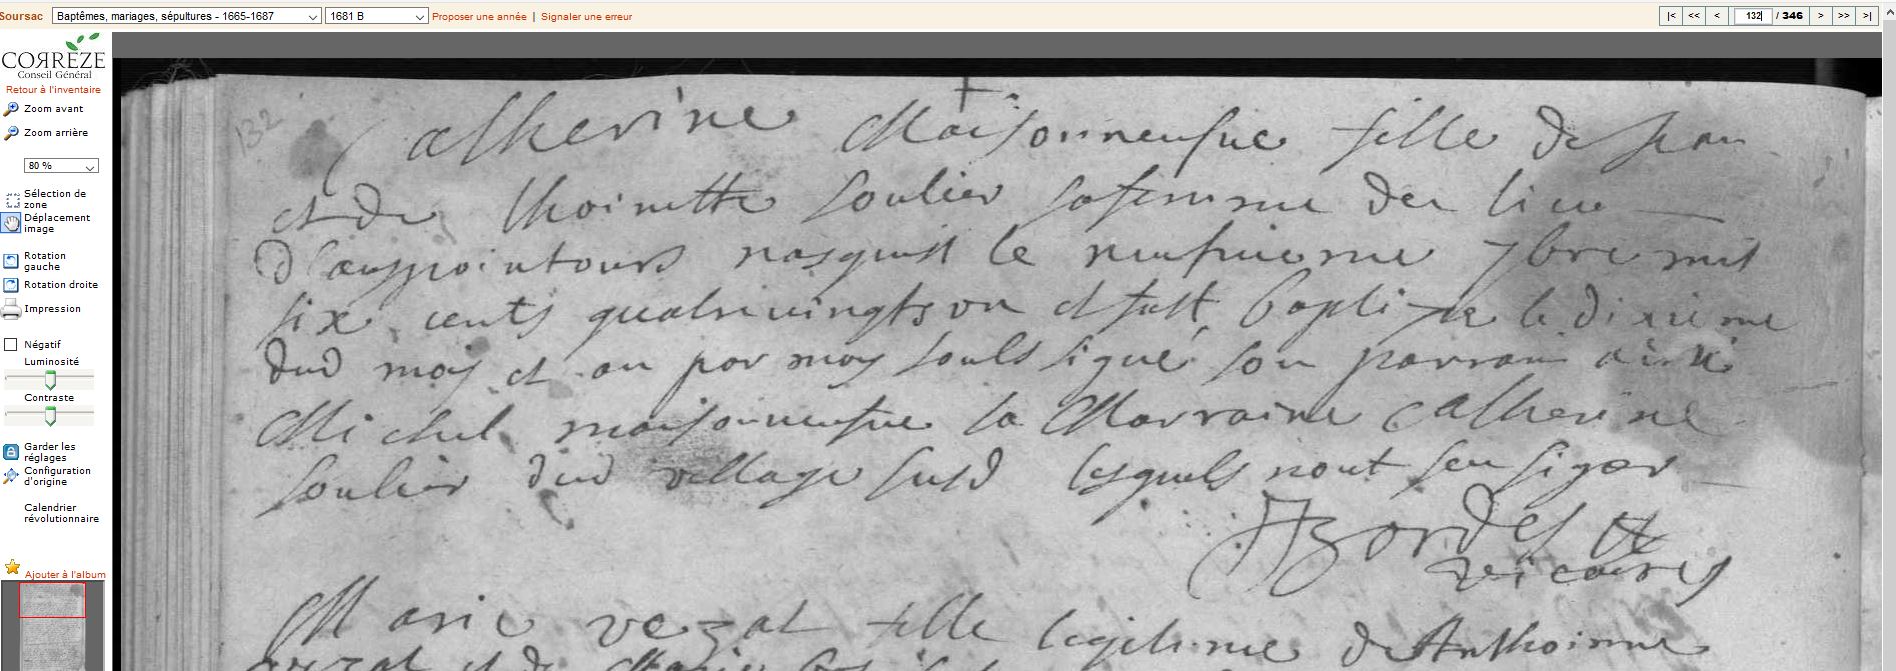 Soursac Baptêmes, mariages, sépultures - 1665-1687 1681 B Proposer une année | Signaler une erreur |< << < 132 / 346 > >> >|
CORRÈZE
Conseil Général
Retour à l'inventaire
Zoom avant
Zoom arrière
80 %
Sélection de
zone
Déplacement
image
Rotation
gauche
Rotation droite
Impression
Négatif
Luminosité
Contraste
Garder les
réglages
Configuration
d'origine
Calendrier
révolutionnaire
Ajouter à l'album
132
Catherine Maisonneufue fille de Jean
et de Thoinette Soulier sa femme du lieu
nasquit le neufuieme 7bre mil
six cents quatreuingts vn et fust baptizee le dixieme
dud mois et an par moy soubs signé son parrain a esté
Michel maisonneufue la Marraine Catherine
Soulier dud village susd lesquels nont sceu signer
Bordes
vicaire
Marie vezat fille legitime de Anthoinne
vezat et de Marie